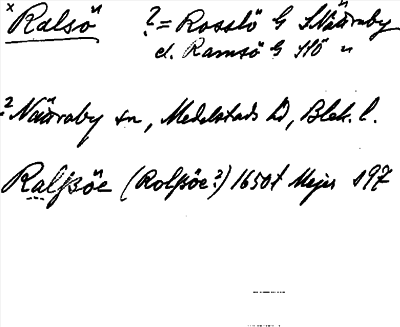 x Ralsö ? = Rosslö G SNättraby
el. Ramsö G SÖ "
? Nättraby sn, Medelstads hd, Blek. l.
Ralßöe (Rolßöe?) 1650t Mejer 197